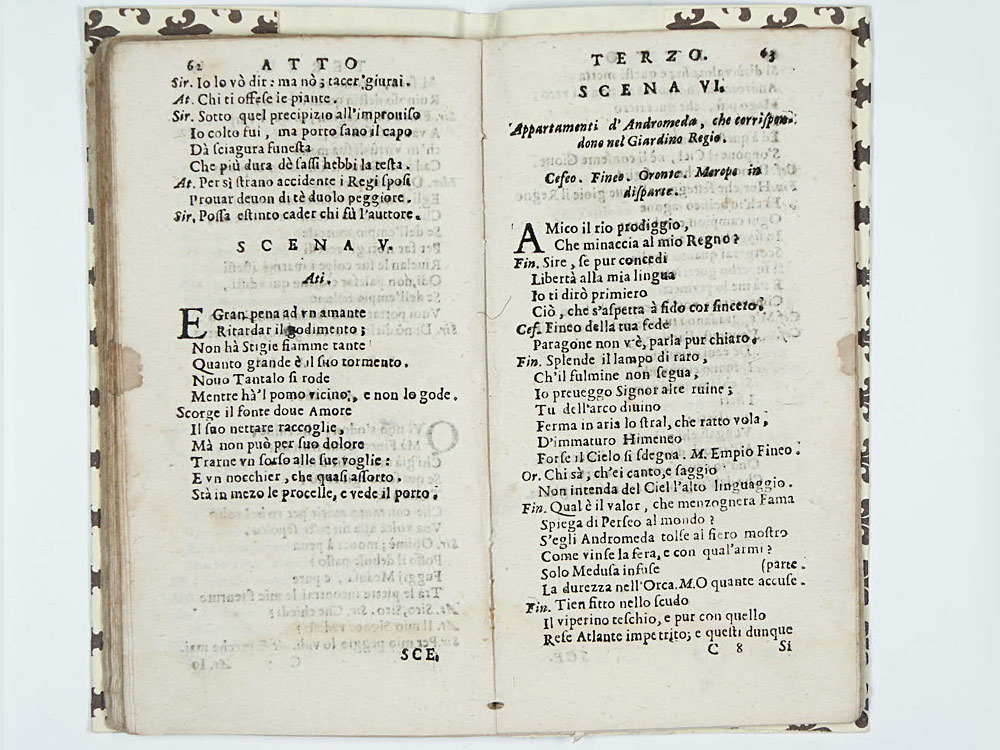 62 ATTO
Sir. Io lo vò dir: ma nò; tacer giurai.
At. Chi ti offese le piante.
Sir. Sotto quel precipizio all'improuiso
Io colto fui, ma porto sano il capo
Dà sciagura funesta
Che più dura dè sassi hebbi la testa.
At. Per sì strano accidente i Regi sposi
Prouar deuon di tè duolo peggiore.
Sir. Possa estinto cader chi fù l'auttore.
SCENA V.
Ati.
E Gran pena ad vn amante
Ritardar il godimento;
Non hà Stigie fiamme tante
Quanto grande è il suo tormento.
Nouo Tantalo si rode
Mentre hà'l pomo vicino, e non lo gode.
Scorge il fonte doue Amore
Il suo nettare raccoglie,
Mà non può per suo dolore
Trarne vn sorso alle sue voglie:
E vn nocchier, che quasi assorto.
Stà in mezo le procelle, e vede il porto.
SCE.
TERZO. 63
SCENA VI.
Appartamenti d'Andromeda, che corrispon-
dono nel Giardino Regio.
Cefeo. Fineo. Oronte. Merope in
disparte.
AMico il rio prodiggio,
Che minaccia al mio Regno?
Fin. Sire, se pur concedi
Libertà alla mia lingua
Io ti dirò primiero
Ciò, che s'aspetta à fido cor sincero.
Cef. Fineo della tua fede
Paragone non v'è, parla pur chiaro.
Fin. Splende il lampo di raro,
Ch'il fulmine non segua,
Io preueggo Signor alte ruine;
Tu dell'arco diuino
Ferma in aria lo stral, che ratto vola,
D'immaturo Himeneo
Forse il Cielo si sdegna. M. Empio Fineo.
Or. Chi sà, ch'ei canto, e saggio
Non intenda del Ciel l'alto linguaggio.
Fin. Qual è il valor, che menzognera Fama
Spiega di Perseo al mondo?
S'egli Andromeda tolse al fiero mostro
Come vinse la fera, e con qual'armi?
Solo Medusa infuse (parte.
La durezza nell'Orca. M. O quante accuse.
Fin. Tien fitto nello scudo
Il viperino teschio, e pur con quello
Rese Atlante impetrito; e questi dunque
C 8 Si